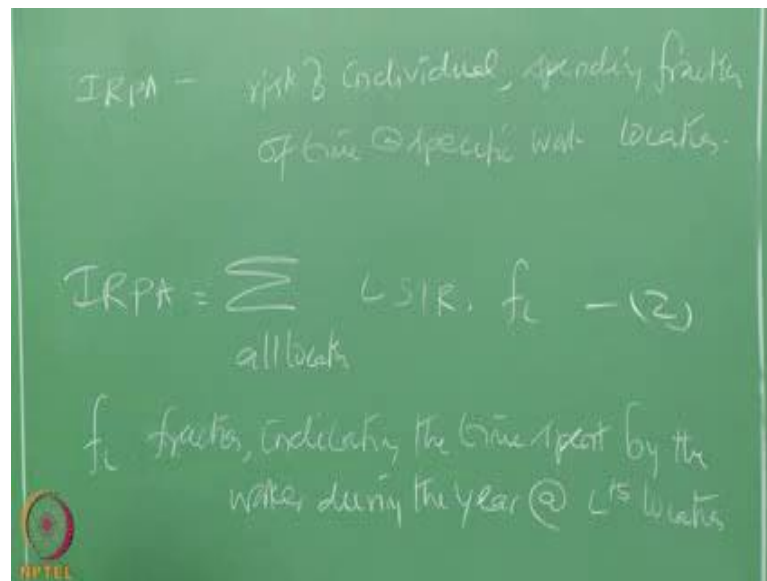 IRPA - risk of individual, spending fraction
of time @ specific work location.
IRPA = ∑ LSIR. fL - (2)
all locats
fL fraction, indicating the time spent by the
worker during the year @ Lth location
NPTEL